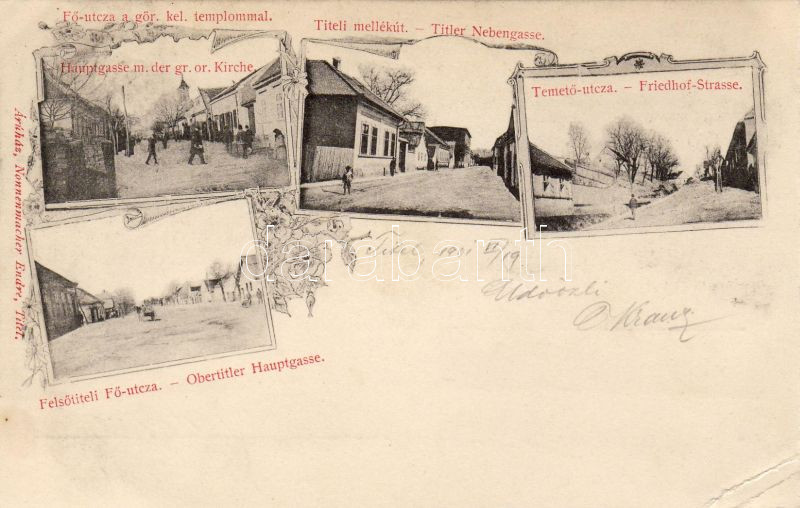 Fő-utcza a gör. kel. templommal.
Hauptgasse m. der gr. or. Kirche.
Titeli mellékút. – Titler Nebengasse.
Temető-utcza. – Friedhof-Strasse.
Felsőtiteli Fő-utcza. – Obertitler Hauptgasse.
Árúház, Nonnenmacher Endre, Titel.
Titel, 1901 VI/19
Üdvözli
Kranz
darabanth